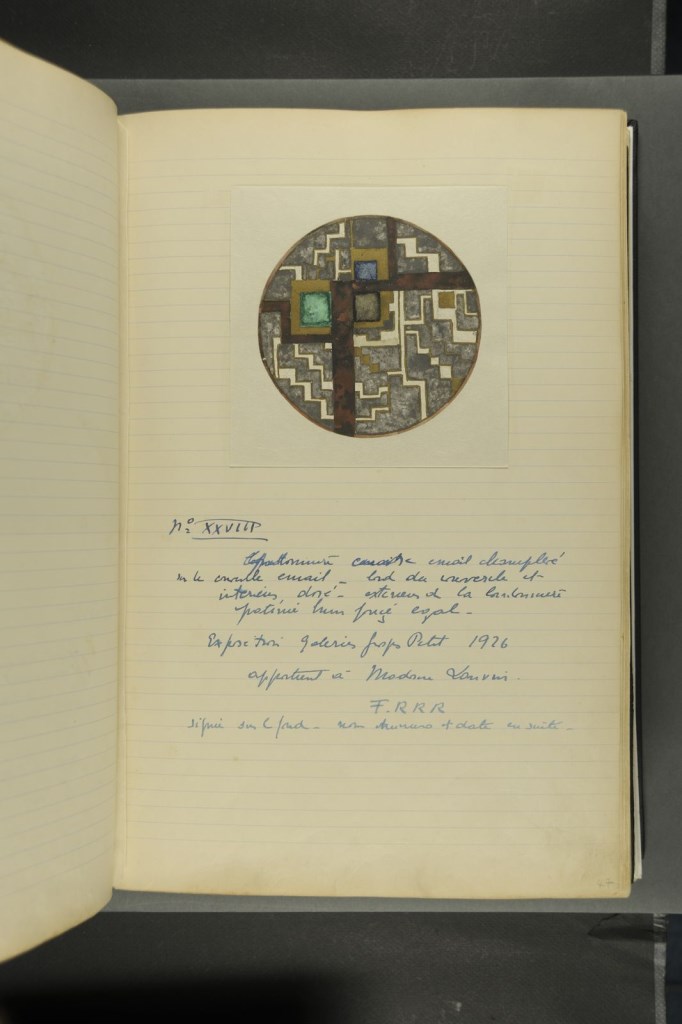 No XXVIII
émail champlevé
sur le couvercle émail - bord du couvercle et
intérieur doré - extérieur de la bonbonnière
patiné brun foncé égal -
Exposition Galeries Georges Petit 1926
appartient à Madame Lanvin.
F.RRR
signée sur le fond - nom numéro et date en suite -